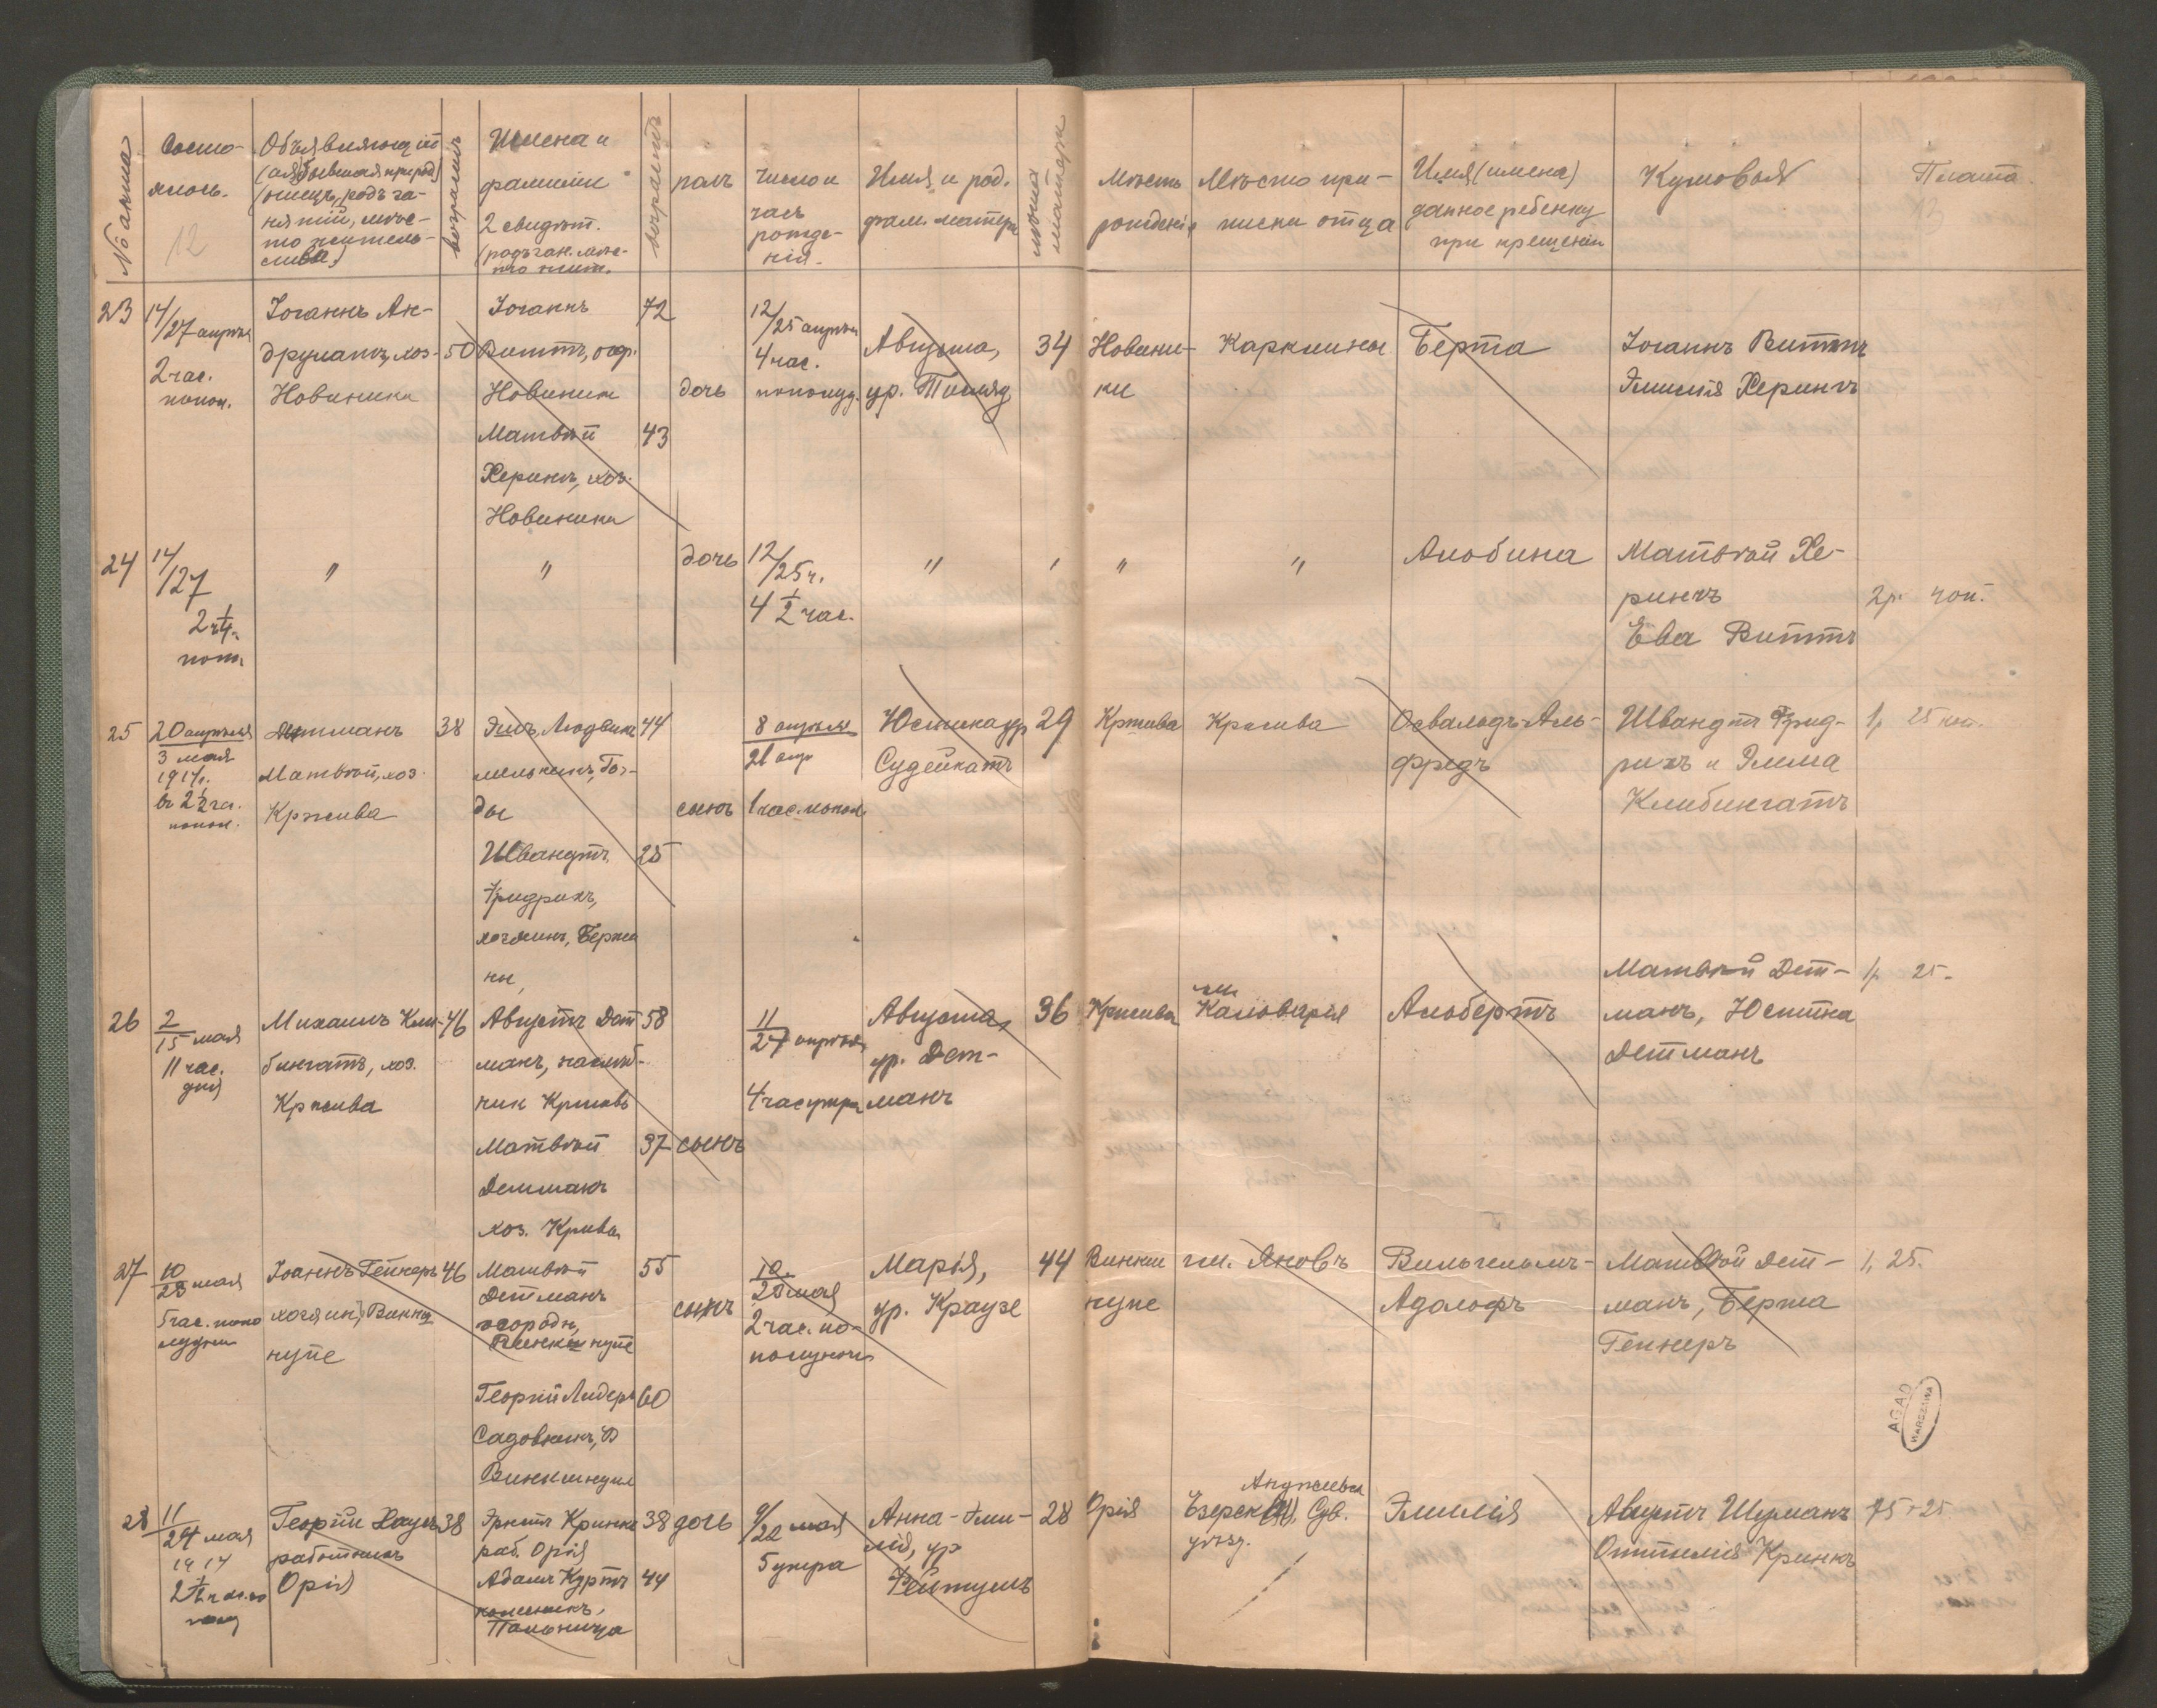 № акта
Состо-
ялось.
12
Объявляющій
(ая) бывшая при род.)
(отецъ, родъ за-
нятій, мѣс-
то житель-
ства)
возрастъ
Имена и
фамиліи
2 свидѣт.
(родъ зан. мѣс-
то жит.
возрастъ
полъ
Число и
часъ
рожде-
нія.
Имя и род.
фам. матери
лѣта
матери
Мѣсто
рожденія
Мѣсто при-
писки отца
Имя (имена)
данное ребенку
при крещеніи
Кумовья
Плата
13
23
14/27 апрѣля
2 час.
попол.
Іоганнъ Ан-
друлатъ, хоз.
Новиники
50
Іоганнъ
Виттъ, огор.
Новиники
72
Матвѣй
Херингъ, хоз.
Новиники
43
дочь
12/25 апрѣля
4 час.
пополуд.
Августа,
ур.
34
Новини-
ки
Карклины
Берта
Іоганнъ Виттъ
Эмилія Херингъ
24
14/27
2 1/4
поп.
"
"
дочь
12/25 ч.
4 1/2 час.
"
"
"
"
Альбина
Матвѣй Хе-
рингъ
Ева Виттъ
2 р. коп.
25
20 апрѣля
3 мая
1914 г.
въ 2 1/2 ча.
попол.
Детманъ
Матвѣй, хоз.
Кржива
38
Людвигъ
44
мельникъ, Гор-
ды
Швандтъ
25
Фридрихъ,
хозяинъ, Бержи
ны,
сынъ
8 апрѣля
21 апр
1 час. попол.
Юстина ур
Судейкатъ
29
Кржива
Кржива
Освальдъ-Аль-
фредъ
Швандтъ Фрид-
рихъ и Эмма
Клибингатъ
1, 25 коп.
26
2
15 мая
11 час.
дня
Михаилъ Кли-
бингатъ, хоз.
Кржива
46
Августъ Дет
58
манъ,
Матвѣй
37
Детманъ
хоз. Крива
сынъ
11
27 апрѣля
4 час утра
Августа,
ур. Дет-
манъ
36
Кржива
гм.
Кальварія
Альбертъ
Матвѣй Дет-
манъ, Юстина
Детманъ
1, 25.
27
10
23 мая
5 час. попо
лудни
Іоаннъ Генгеръ
хозяинъ, Винкш
нупе
46
Матвѣй
Детманъ
огородн,
Винкшнупе
55
Георгій Лидеръ
60
Садовникъ, В
Винкшнупе
сынъ
10
23 мая
2 час. по-
полуночи
Марія,
ур. Краузе
44
Винкш
нупе
гм. Яновъ
Вильгельмъ-
Адольфъ
Матвѣй Дет-
манъ, Берта
Генгеръ
1, 25.
AGAD
WARSZAWA
28
11
24 мая
1914
Георгій
работникъ
Орія
38
Эрнстъ Кринкъ
раб. Орія
38
Адамъ Куртъ
44
Пальница
дочь
9/22 мая
5 утра
Анна-Эми-
лія, ур
28
Орія
Сув.
уѣзд.
Эмилія
Августъ Шуманъ
Оттилія Кринкъ
75+25